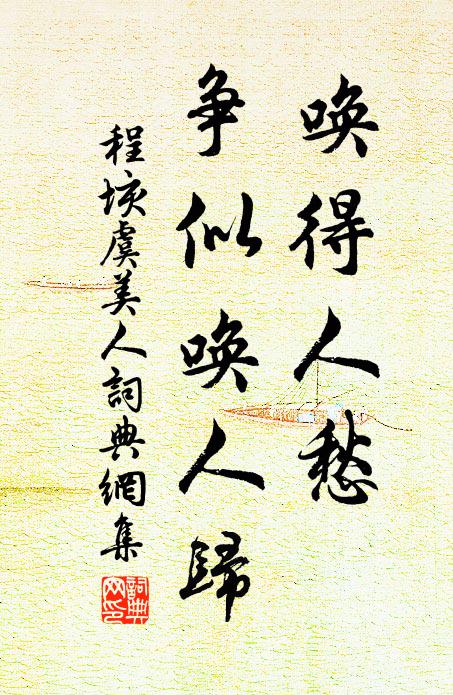 喚得人愁
爭似喚人歸
程垓虞美人詞典網集
詞典
网印